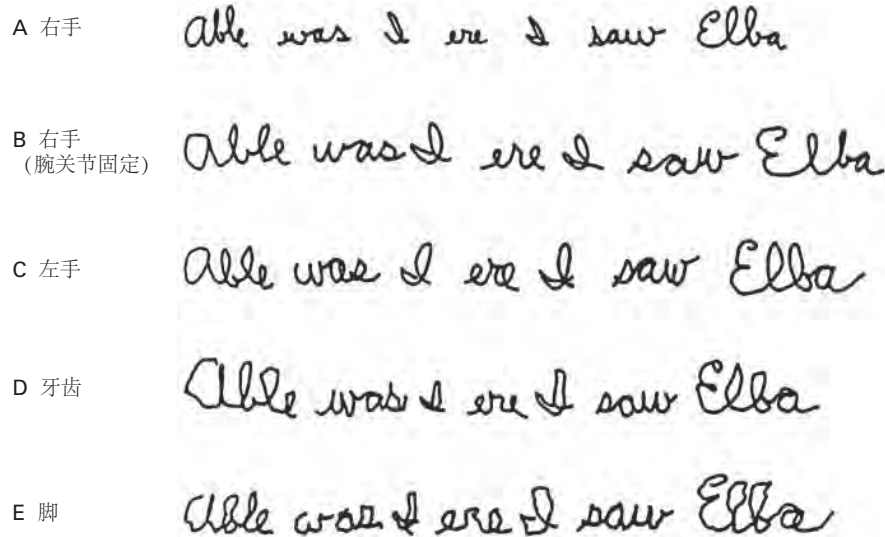 A 右手 Able was I ere I saw Elba
B 右手 Able was I ere I saw Elba
(腕关节固定)
C 左手 Able was I ere I saw Elba
D 牙齿 Able was I ere I saw Elba
E 脚 Able was I ere I saw Elba